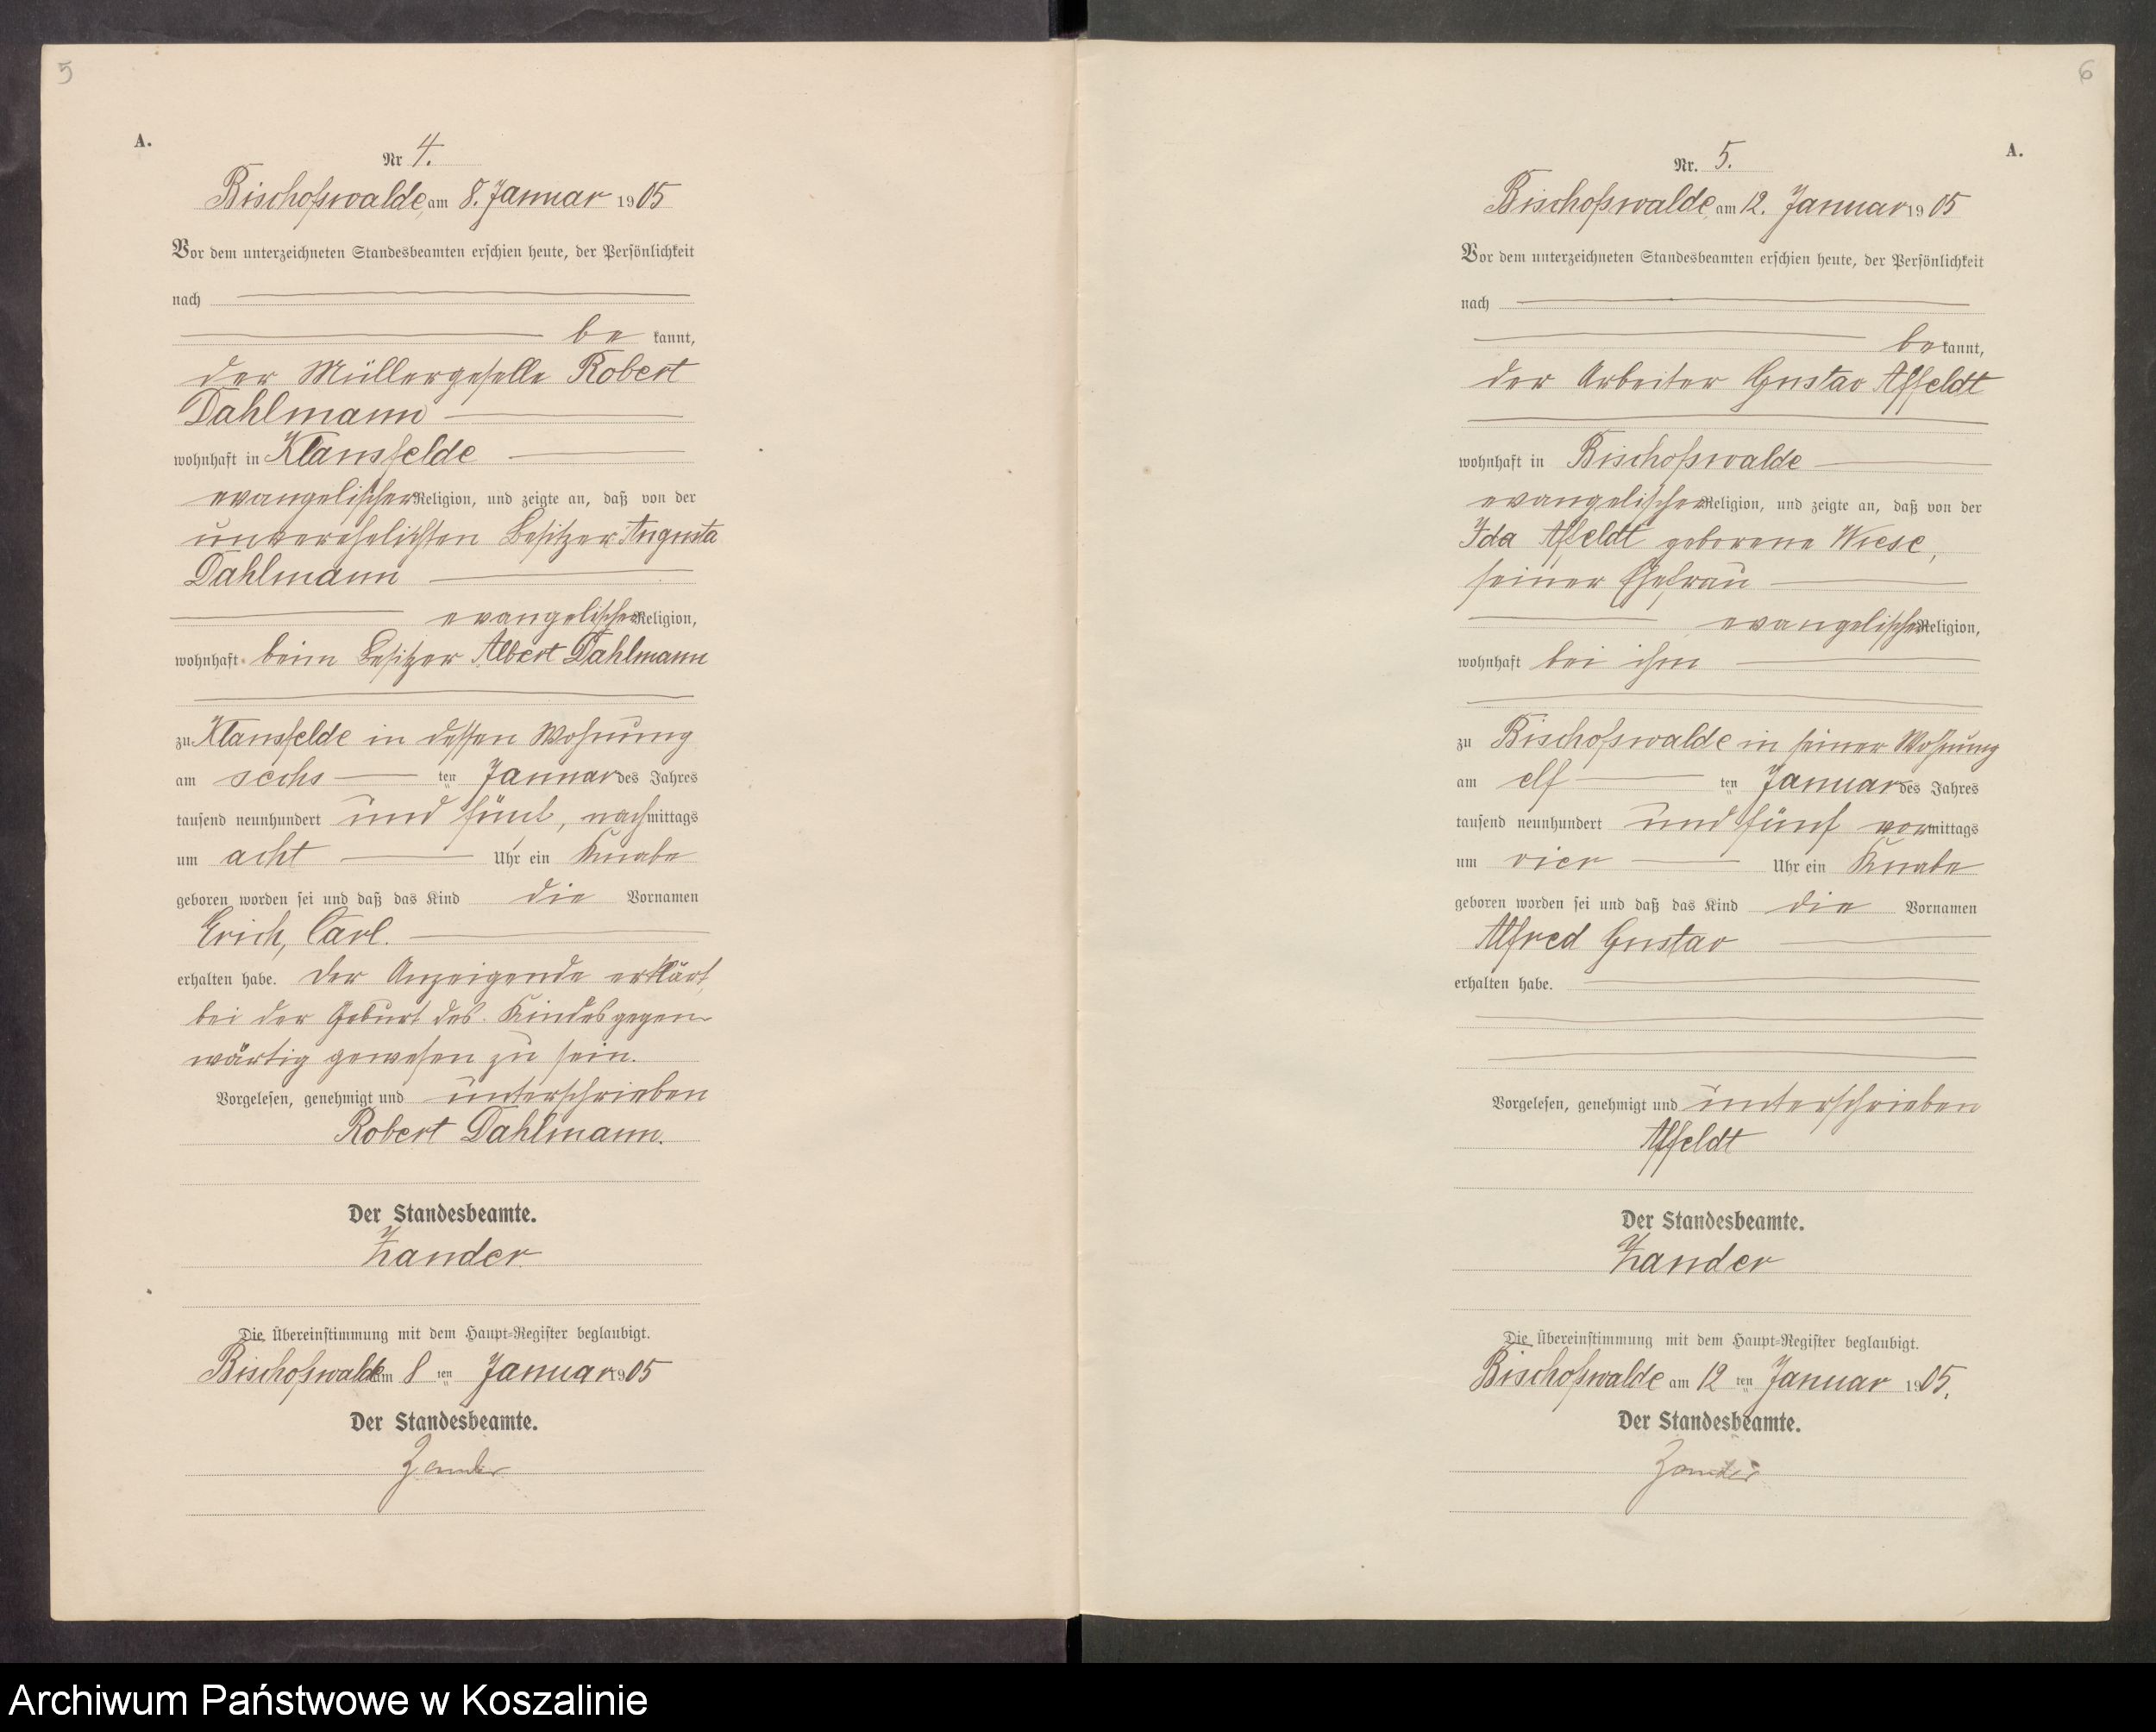 5
A.
Nr 4.
Bischofswalde, am 8. Januar 1905
Vor dem unterzeichneten Standesbeamten erschien heute, der Persönlichkeit
nach
be kannt,
der Müllergeselle Robert
Dahlmann
wohnhaft in Klausfelde
evangelischer Religion, und zeigte an, daß von der
unverehelichten Besitzer Augusta
Dahlmann
evangelischer Religion,
wohnhaft beim Besitzer Albert Dahlmann
zu Klausfelde in dessen Wohnung
am sechs ten Januar des Jahres
tausend neunhundert und fünf, nachmittags
um acht Uhr ein Knabe
geboren worden sei und daß das Kind die Vornamen
Erich, Carl.
erhalten habe. Der Anzeigende erklärt,
bei der Geburt des Kindes gegen-
wärtig gewesen zu sein.
Vorgelesen, genehmigt und unterschrieben
Robert Dahlmann.
Der Standesbeamte.
Zander
Die Übereinstimmung mit dem Haupt-Register beglaubigt.
Bischofswalde am 8 ten Januar 1905
Der Standesbeamte.
Zander
6
A.
Nr. 5.
Bischofswalde, am 12. Januar 1905
Vor dem unterzeichneten Standesbeamten erschien heute, der Persönlichkeit
nach
be kannt,
der Arbeiter Gustav Affeldt
wohnhaft in Bischofswalde
evangelischer Religion, und zeigte an, daß von der
Ida Affeldt geborene Wiese,
seiner Ehefrau
evangelischer Religion,
wohnhaft bei ihm
zu Bischofswalde in seiner Wohnung
am elf ten Januar des Jahres
tausend neunhundert und fünf vormittags
um vier Uhr ein Knabe
geboren worden sei und daß das Kind die Vornamen
Alfred Gustav
erhalten habe.
Vorgelesen, genehmigt und unterschrieben
Affeldt
Der Standesbeamte.
Zander
Die Übereinstimmung mit dem Haupt-Register beglaubigt.
Bischofswalde am 12 ten Januar 1905.
Der Standesbeamte.
Zander
Archiwum Państwowe w Koszalinie